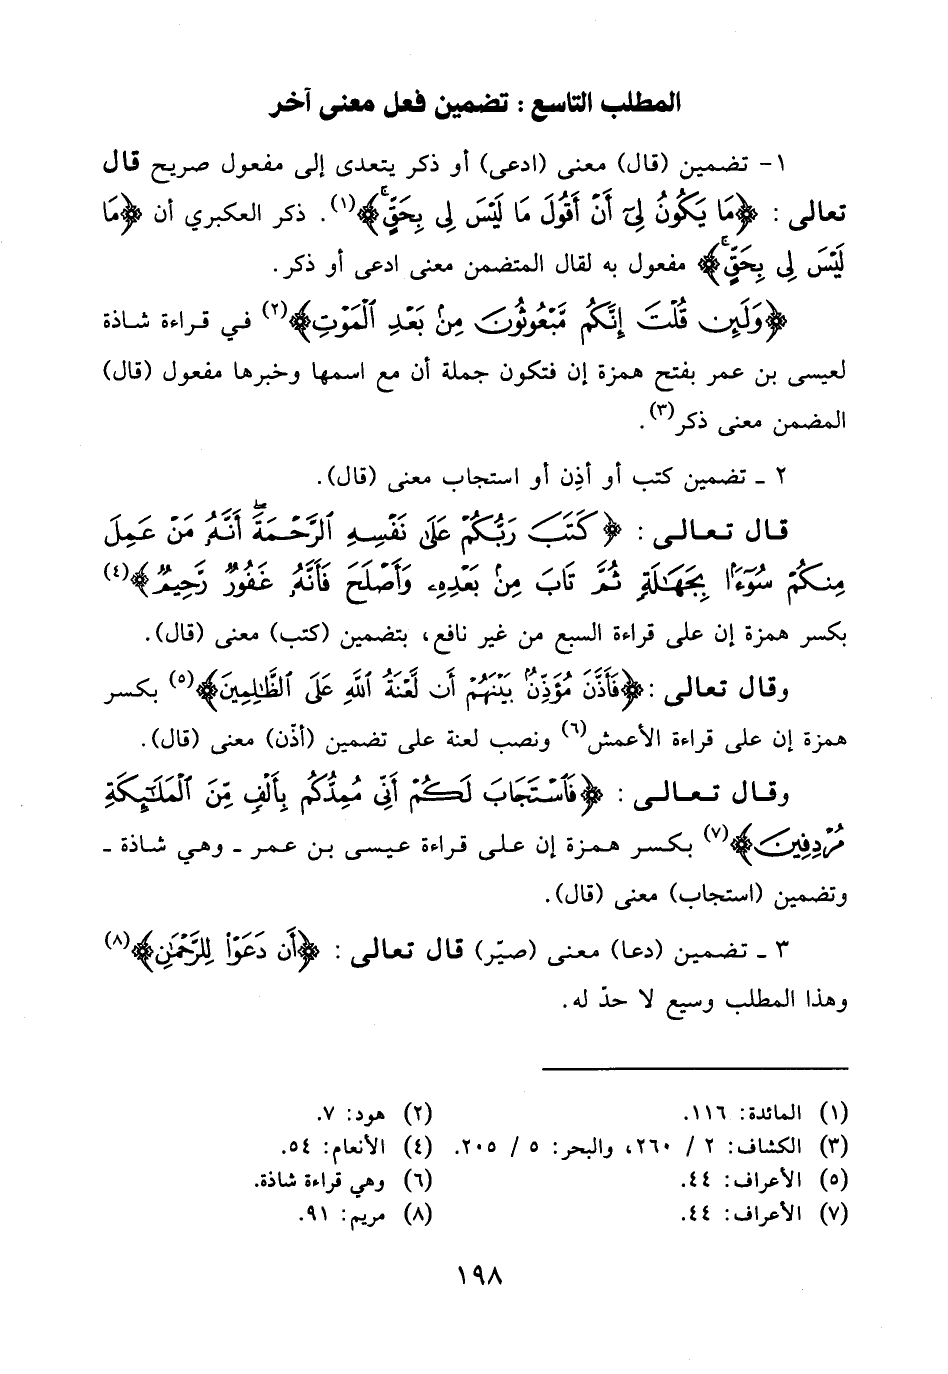 المطلب التاسع : تضمين فعل معنى آخر
١- تضمين (قال) معنى (ادعى) أو ذكر يتعدى إلى مفعول صريح قال
تعالى : ﴿مَا يَكُونُ لِىٓ أَنْ أَقُولَ مَا لَيْسَ لِى بِحَقٍّ﴾(١). ذكر العكبري أن ﴿مَا
لَيْسَ لِى بِحَقٍّ﴾ مفعول به لقال المتضمن معنى ادعى أو ذكر.
﴿وَلَئِن قُلْتَ إِنَّكُم مَّبْعُوثُونَ مِنۢ بَعْدِ ٱلْمَوْتِ﴾(٢) في قراءة شاذة
لعيسى بن عمر بفتح همزة إن فتكون جملة أن مع اسمها وخبرها مفعول (قال)
المضمن معنى ذكر(٣).
٢ ـ تضمين كتب أو أذِن أو استجاب معنى (قال).
قال تعالى : ﴿كَتَبَ رَبُّكُمْ عَلَىٰ نَفْسِهِ ٱلرَّحْمَةَ ۖ أَنَّهُۥ مَنْ عَمِلَ
مِنكُمْ سُوٓءًۢا بِجَهَٰلَةٍ ثُمَّ تَابَ مِنۢ بَعْدِهِۦ وَأَصْلَحَ فَأَنَّهُۥ غَفُورٌ رَّحِيمٌ﴾(٤)
بكسر همزة إن على قراءة السبع من غير نافع، بتضمين (كتب) معنى (قال).
وقال تعالى :﴿فَأَذَّنَ مُؤَذِّنٌۢ بَيْنَهُمْ أَن لَّعْنَةُ ٱللَّهِ عَلَى ٱلظَّٰلِمِينَ﴾(٥) بكسر
همزة إن على قراءة الأعمش(٦) ونصب لعنة على تضمين (أذّن) معنى (قال).
وقال تعالى : ﴿فَٱسْتَجَابَ لَكُمْ أَنِّى مُمِدُّكُم بِأَلْفٍ مِّنَ ٱلْمَلَٰٓئِكَةِ
مُرْدِفِينَ﴾(٧) بكسر همزة إن على قراءة عيسى بن عمر ـ وهي شاذة ـ
وتضمين (استجاب) معنى (قال).
٣ ـ تضمين (دعا) معنى (صيّر) قال تعالى : ﴿أَن دَعَوْا۟ لِلرَّحْمَٰنِ﴾(٨)
وهذا المطلب وسيع لا حدّ له.
(١) المائدة: ١١٦. (٢) هود: ٧.
(٣) الكشاف: ٢ / ٢٦٠، والبحر: ٥ / ٢٠٥. (٤) الأنعام: ٥٤.
(٥) الأعراف: ٤٤. (٦) وهي قراءة شاذة.
(٧) الأعراف: ٤٤. (٨) مريم: ٩١.
١٩٨